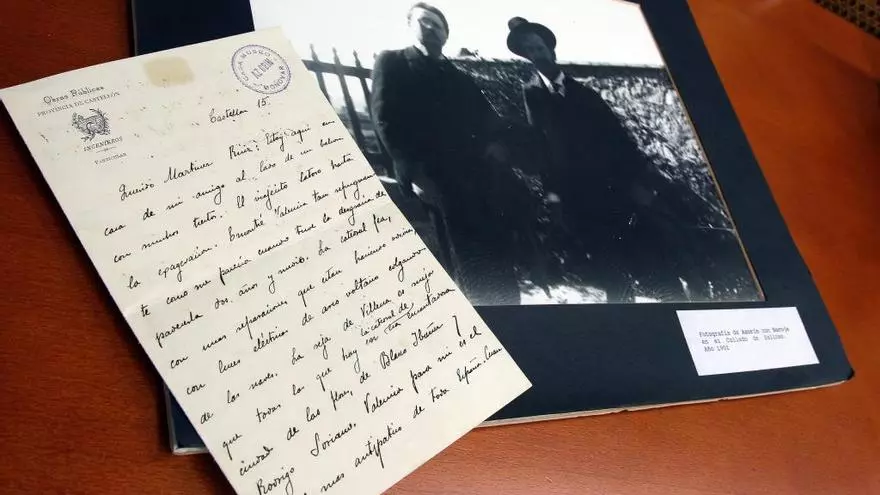 Obras Públicas
PROVINCIA DE CASTELLÓN
INGENIEROS
PARTICULAR
CASA MUSEO
AZORIN
MONOVAR
Castellon 15
Querido Martinez Ruiz: Estoy aquí en
casa de mi amigo al lado de un balcon
con muchos tiestos. El viajecito latoso hasta
la exageración. Encontré Valencia tan repugnan-
te como me parecia cuando tuve la desgracia de
parecerla dos años y medio. La catedral fea,
con unas reparaciones que estan haciendo
con luces eléctricas de arco voltaico colgando
de las naves. La reja de Villena es mejor
que todas las que hay en la catedral de
esta encantadora
ciudad de las flores, de Blasco Ibañez y
Rodrigo Soriano. Valencia para mi es el
mas antipatico de toda España.
Fotografía de Azorín con Baroja
en el Collado de Salinas.
Año 1901